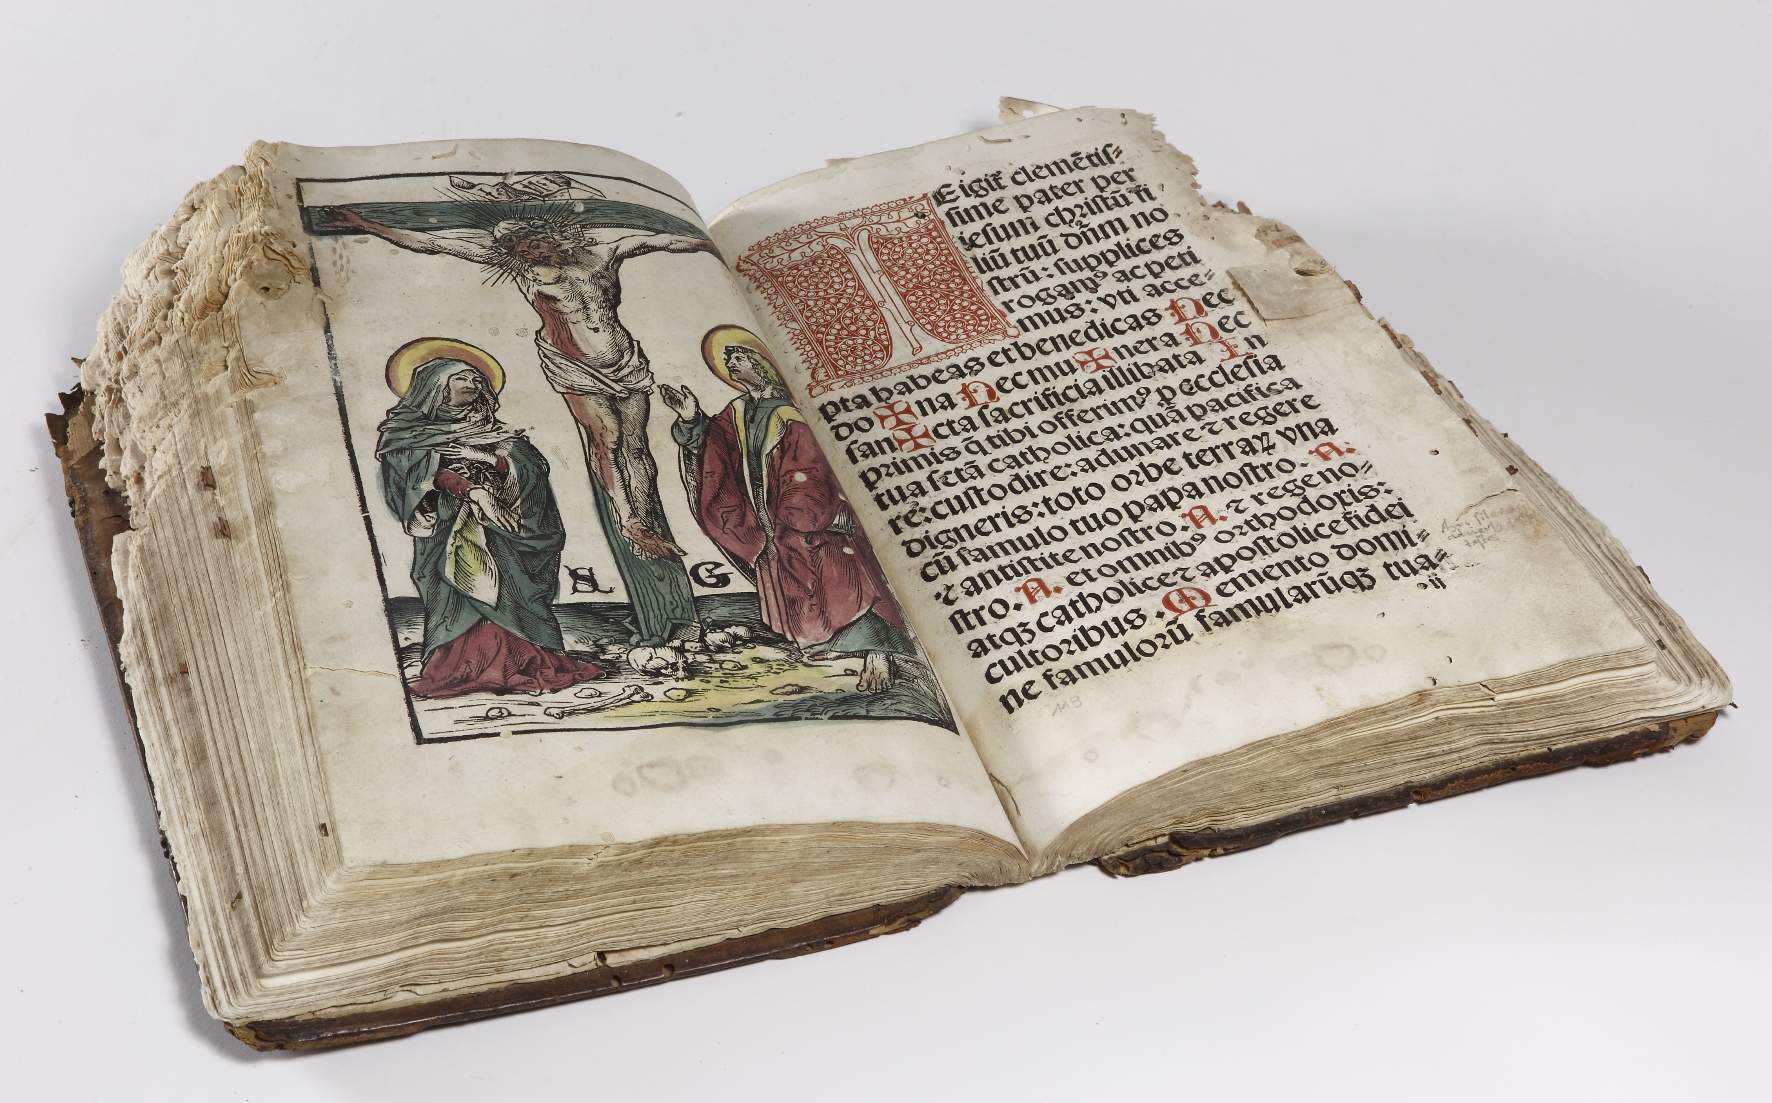 S G
TE igit̄ clemētis⸗
sime pater per
iesum christū fi
liū tuū dn̄m no
strū: supplices
rogamꝰ ac peti
mus: vti acce⸗
pta habeas et benedicas Hec
do ✠ na Hec mu ✠ nera Hec
san ✠ cta sacrificia illibata In
primis q̄ tibi offerimꝰ ꝓ ecclesia
tua sctā catholica: quā pacifica
re: custodire: adunare ⁊ regere
digneris: toto orbe terraꝝ vna
cū famulo tuo papa nostro. A.
⁊ antistite nostro A. ⁊ rege no⸗
stro. A. et omnibꝰ orthodoxis:
atqꝫ catholice ⁊ apostolice fidei
cultoribus. Memento domi⸗
ne famulorū famularūqꝫ tua⸗
ij
119